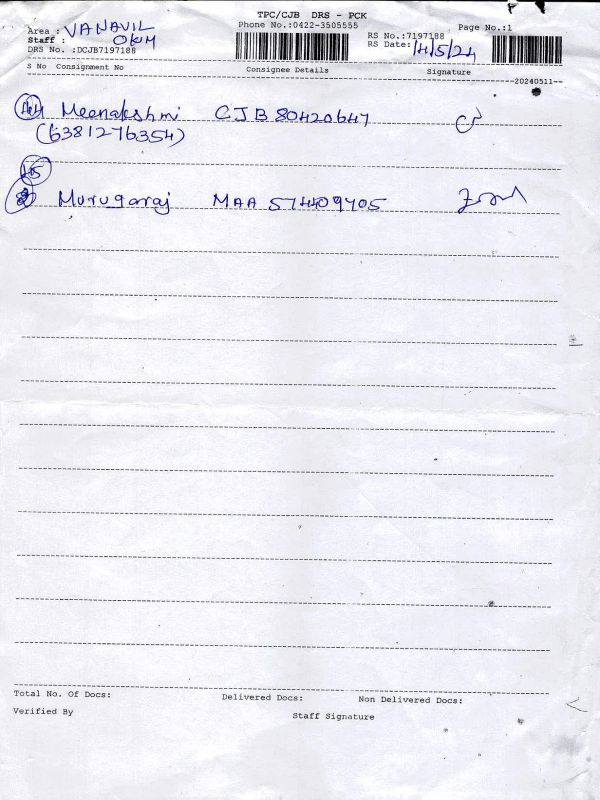 TPC/CJB DRS - PCK
Area : VANAVIL
Phone No.:0422-3505555
Page No.:1
Staff : OKM
RS No.:7197188
DRS No. :DCJB7197188
RS Date: 14/5/24
S No Consignment No Consignee Details Signature
20240511
44 Meenakshmi CJB 80420647
(6381276354)
45
Murugaraj MAA 574409705
Total No. Of Docs: Delivered Docs: Non Delivered Docs:
Verified By Staff Signature